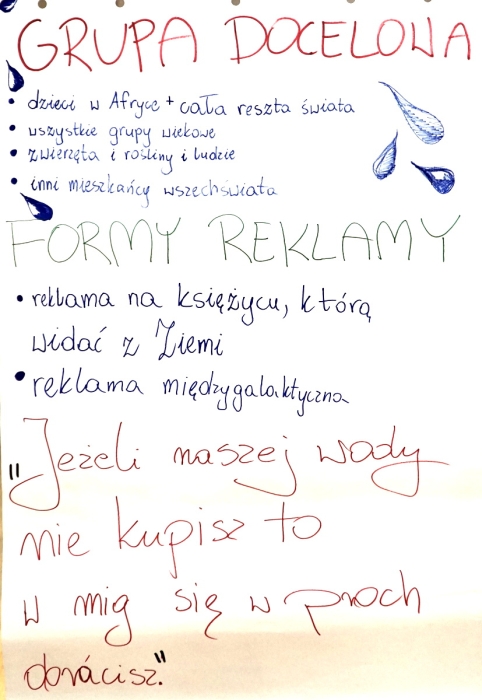 GRUPA DOCELOWA
• dzieci w Afryce + cała reszta świata
• wszystkie grupy wiekowe
• zwierzęta i rośliny i ludzie
• inni mieszkańcy wszechświata
FORMY REKLAMY
• reklama na księżycu, którą
widać z Ziemi
• reklama międzygalaktyczna
"Jeżeli naszej wody
nie kupisz to
w mig się w proch
obrócisz."